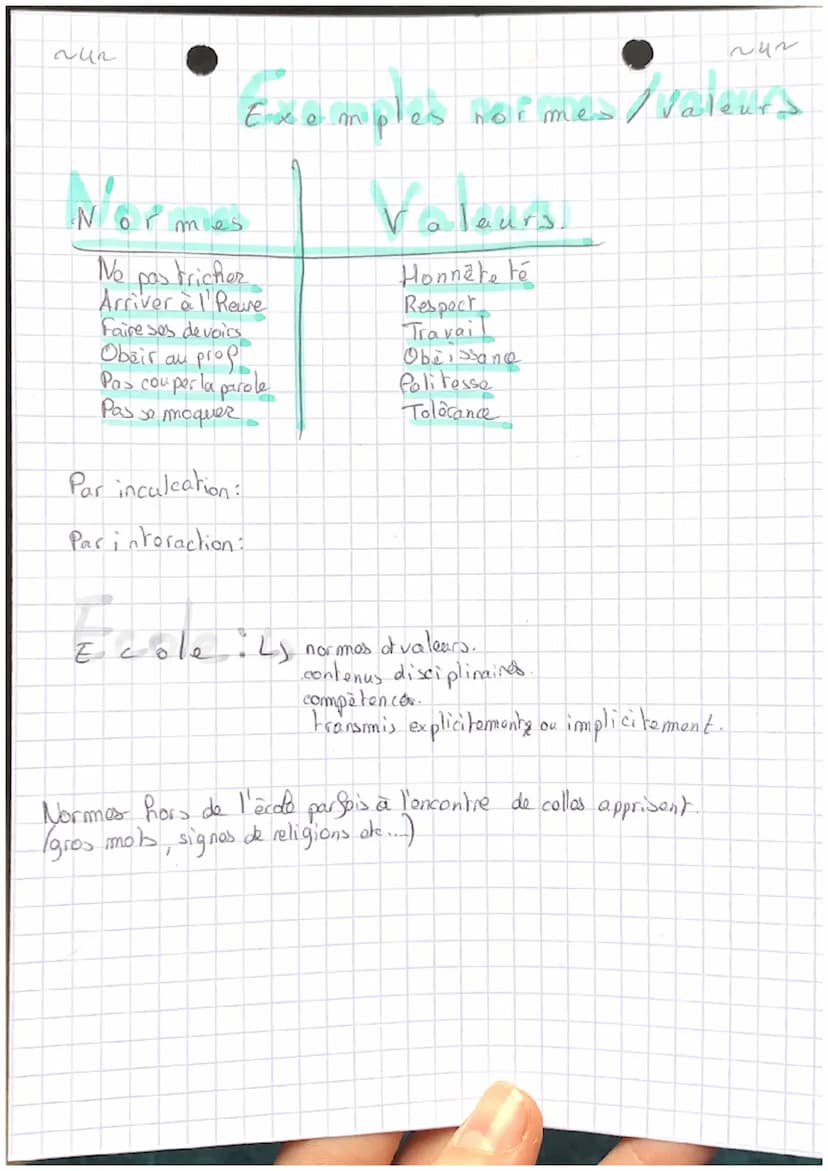 ~4~ ~4~
Exemples normes/valeurs
Normes Valeurs.
Ne pas tricher Honnêteté
Arriver à l'heure Respect
Faire ses devoirs Travail
Obéir au prof Obéissance
Pas couper la parole Politesse
Pas se moquer Tolérance
Par inculcation:
Par interaction:
Ecole : ↳ normes et valeurs.
contenus disciplinaires.
compétences.
transmis explicitement ou implicitement.
Normes hors de l'école parfois à l'encontre de celles apprisent.
(gros mots, signes de religions etc...)